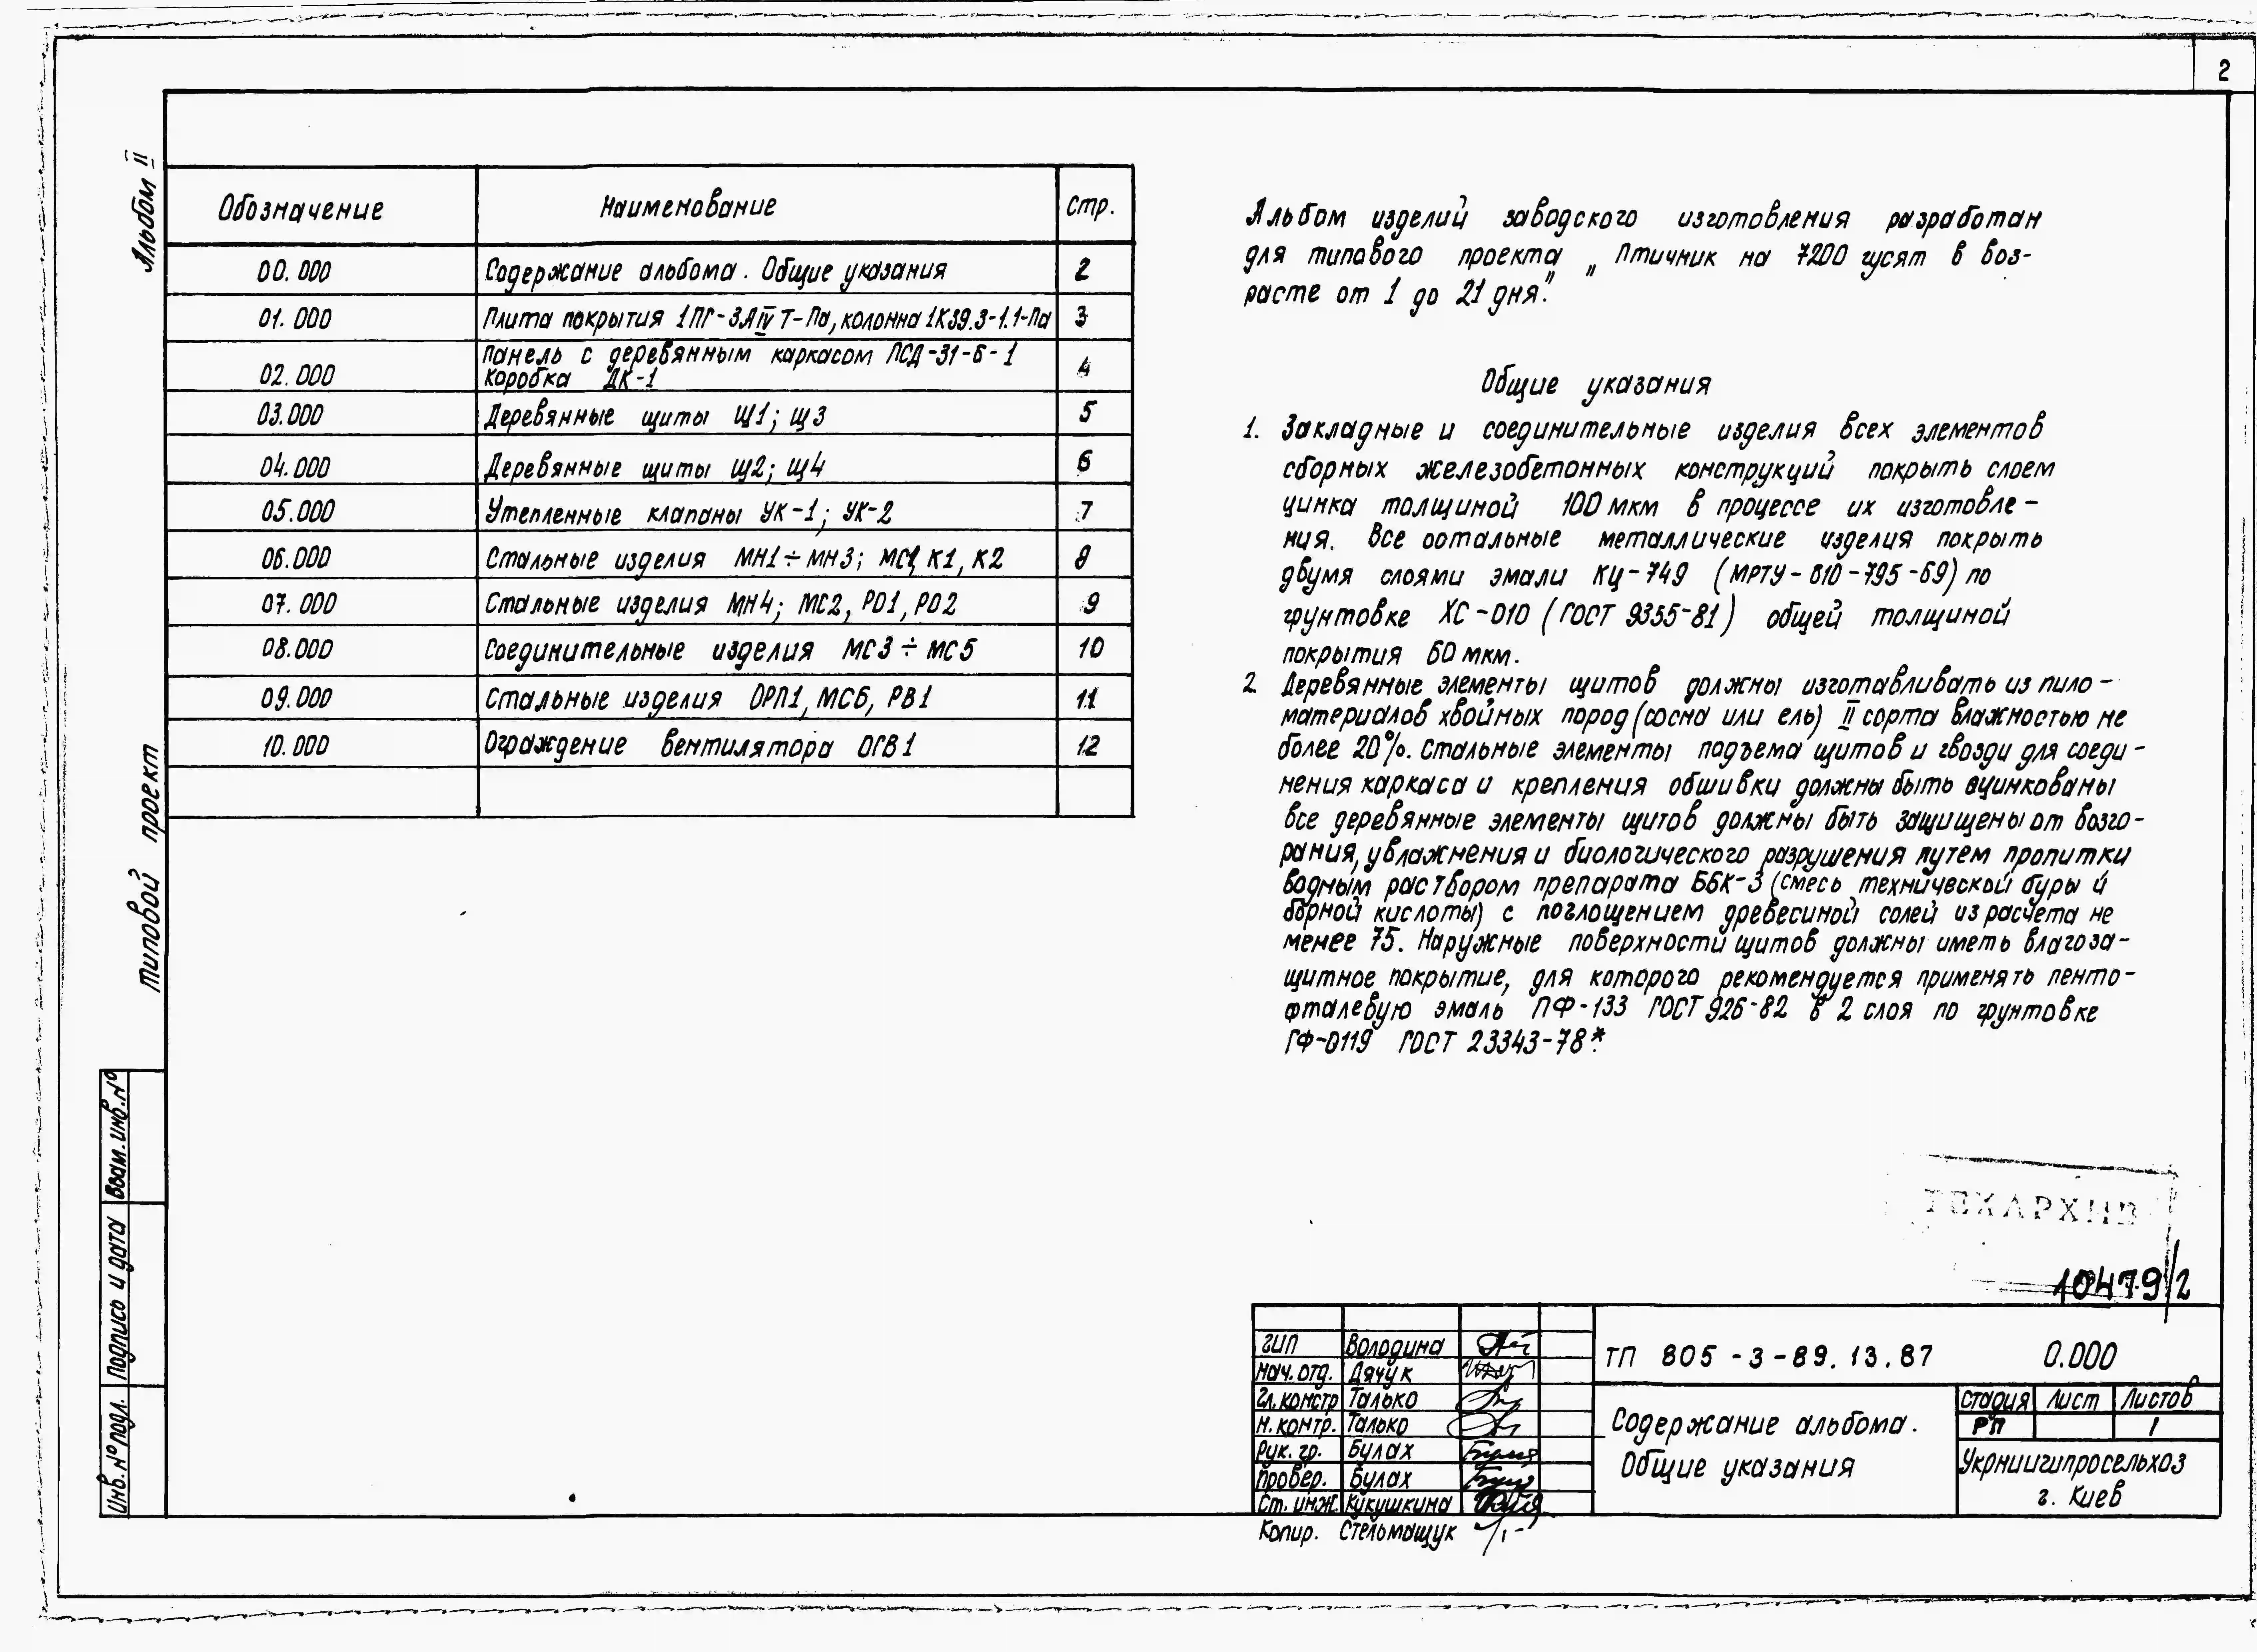 2
Альбом II
Типовой проект
Обозначение Наименование стр.
00.000 Содержание альбома. Общие указания 2
01.000 Плита покрытия 1ПГ-3АIVТ-Па, колонна 1К39.3-1.1-Па 3
Панель с деревянным каркасом ПСД-31-6-1
02.000 Коробка ДК-1 4
03.000 Деревянные щиты Щ1; Щ3 5
04.000 Деревянные щиты Щ2; Щ4 6
05.000 Утепленные клапаны УК-1; УК-2 7
06.000 Стальные изделия МН1÷МН3; МС1, К1, К2 8
07.000 Стальные изделия МН4; МС2, РО1, РО2 9
08.000 Соединительные изделия МС3÷МС5 10
09.000 Стальные изделия ОРП1, МС6, РВ1 11
10.000 Ограждение вентилятора ОГВ1 12
Альбом изделий заводского изготовления разработан
для типового проекта „Птичник на 7200 гусят в воз-
расте от 1 до 21 дня."
Общие указания
1. Закладные и соединительные изделия всех элементов
сборных железобетонных конструкций покрыть слоем
цинка толщиной 100 мкм в процессе их изготовле-
ния. Все остальные металлические изделия покрыть
двумя слоями эмали КЦ-749 (МРТУ-610-795-69) по
грунтовке ХС-010 (ГОСТ 9355-81) общей толщиной
покрытия 60 мкм.
2. Деревянные элементы щитов должны изготавливать из пило-
материалов хвойных пород (сосна или ель) II сорта влажностью не
более 20%. Стальные элементы подъема щитов и гвозди для соеди-
нения каркаса и крепления обшивки должны быть оцинкованы
все деревянные элементы щитов должны быть защищены от возго-
рания, увлажнения и биологического разрушения путем пропитки
водным раствором препарата ББК-3 (смесь технической буры и
борной кислоты) с поглощением древесиной солей из расчета не
менее 75. Наружные поверхности щитов должны иметь влагоза-
щитное покрытие, для которого рекомендуется применять пента-
фталевую эмаль ПФ-133 ГОСТ 926-82 в 2 слоя по грунтовке
ГФ-0119 ГОСТ 23343-78*.
ТЕХАРХИВ
10479/2
ГИП Володина
Нач. отд. Дячук
Гл. констр Талько
Н. контр. Талько
Рук. гр. Булах
Провер. Булах
Ст. инж. Кукушкина
Копир. Стельмащук
ТП 805-3-89.13.87 0.000
Содержание альбома.
Общие указания
Стадия Лист Листов
РП 1
Укрниигипросельхоз
г. Киев
Взам. инв. №
Подпись и дата
Инв. № подл.